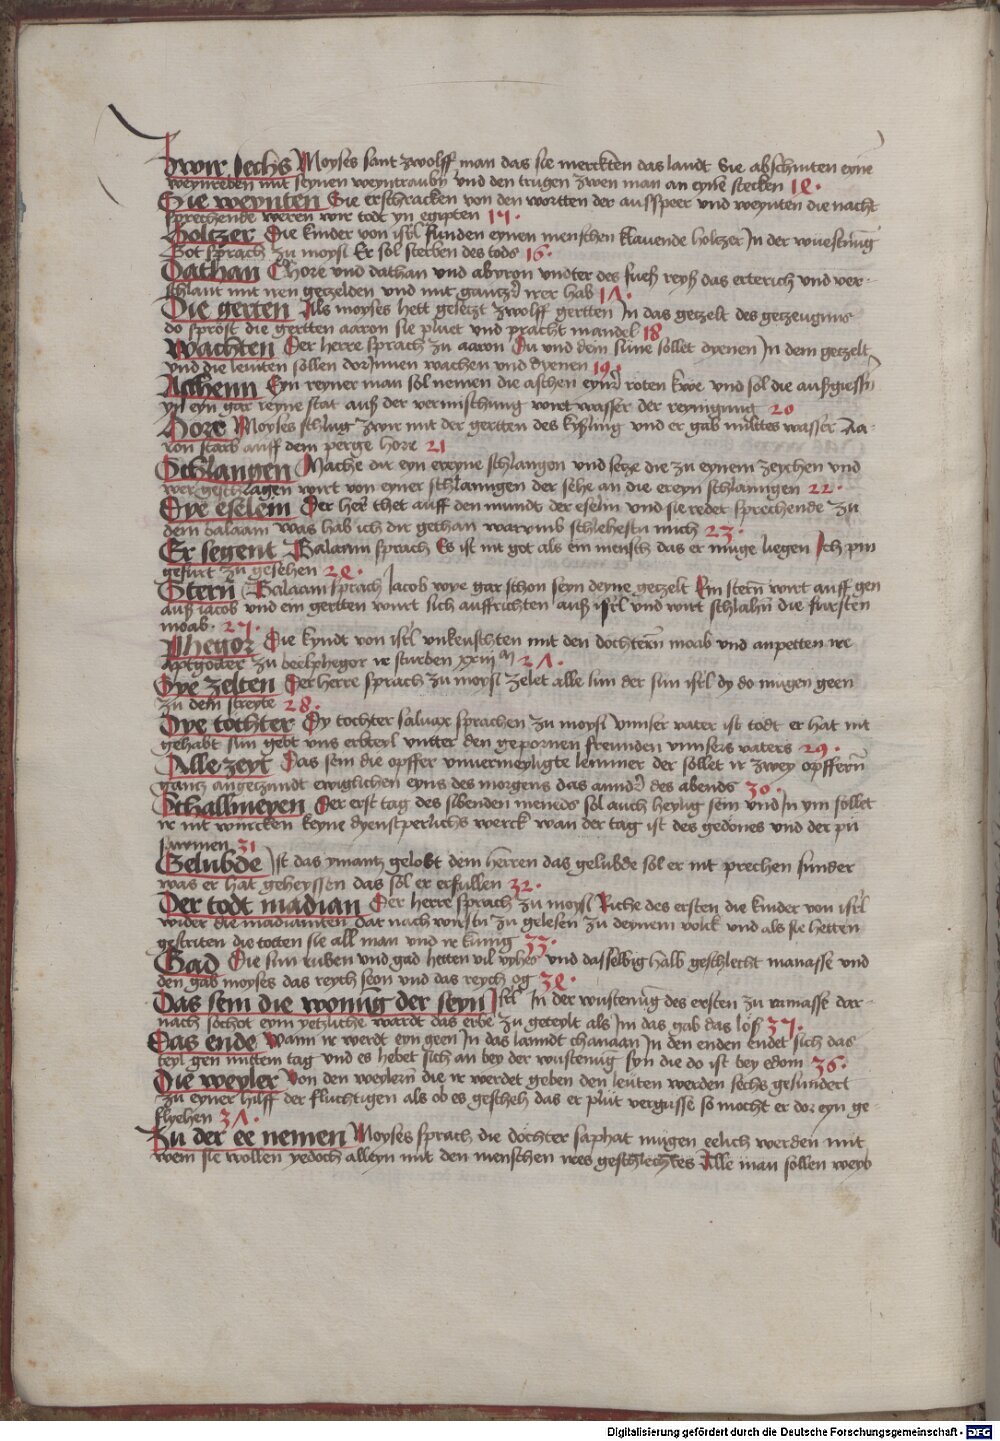 Zwir sechs Moyses sant zwolff man das sie merckten das landt Sie abschniten eyne
weynreben mit seynen weyntraubn vnd den trugen zwen man an eyne stecken 14.
Sie weynten Sie erschracken von den wortten der ausspeer vnd weynten die nacht
sprechende weren wir todt yn egipten 15.
Holtzer Die kinder von isrl funden eynen menschen klaubende holtzer In der wuestnug
Got sprach zu moysi Er sol sterben des tods 16.
Dathan Chore vnd dathan vnd abyron vndter des fueß reyß das erterich vnd ver-
schlant mit iren getzelden vnd mit gantzer irer hab 17.
Die gerten Als moyses hett gesetzt zwolff gertten In das getzelt des getzeugnus
do sprost die gertten aaron sie pluet vnd pracht mandel 18
Wachten Der herre sprach zu aaron Du vnd dein sune sollet dyenen In dem getzelt
vnd die leuiten sollen dorInnen wachen vnd dyenen 19.
Aschenn Eyn reyner man sol nemen die aschen eyner roten kwe vnd sol die außgiessen
yn eyn gar reyne stat auß der vermischung wirt wasser der reynigung 20
Hore Moyses schlug zwir mit der gertten des kyßling vnd er gab milttes wasser Aa-
ron starb auff dem perge hore 21
Schlangen Mache dir eyn ereyne schlangen vnd setze die zu eynem zeychen vnd
wer geschlagen wirt von eyner schlanngen der sehe an die ereyn schlanngen 22.
Dye eselein Der herr thet auff den mundt der eselin vnd sie redet sprechende zu
dem balaam was hab ich dir gethan warvmb schlehestu mich 23.
Er segent Balaam sprach Es ist nit got als ein mensch das er muge liegen Ich pin
gefurt zu gesehen 24.
Stern Balaam sprach Iacob wye gar schon seyn deyne getzelt Ein stern wirt auff gen
auß iacob vnd ein gertten wirt sich auffrichten auß isrl vnd wirt schlahn die fursten
moab. 25.
Phegor Die kyndt von isrl vnkeuschten mit den dochtern moab vnd anpetten ire
aptgotter zu beelphegor ir sturben xxiiij m 27.
Dye zelten Der herre sprach zu moysi zelet alle sun der sun isrl dy do mugen geen
zu dem streyte 28.
Dye tochter Dy tochter salvax sprachen zu moysi vnnser vater ist todt er hat nit
gehabt sun gebt vns erbteyl vntter den gepornen freunden vnnsers vaters 29.
Alle zeyt Das sein die opffer vnuermeyligte lemmer der sollet ir zwey opffern
gantz angetzundt ewiglichen eyns des morgens das annder des abends 30.
Schallmeyen Der erst tag des sibenden moneds sol auch heylig sein vnd In ym sollet
ir nit wurcken keyne dyenstperlichs werck wan der tag ist des gedones vnd der pu
sawmen 31
Gelubde Ist das ymantz gelobt dem herren das gelubde sol er nit prechen sunder
was er hat geheyssen das sol er erfullen 32.
Der todt madian Der herre sprach zu moysi Riche des ersten die kinder von isrl
wider die madianiten dar nach wirstu zu gelesen zu deynem volk vnd als sie hetten
gestriten die totten sie all man vnd ir kunig 33.
Gad Die sun ruben vnd gad hetten vil vyhes vnd dasselbig halb geschlecht manasse vnd
den gab moyses das reych seon vnd das reych og 34.
Das sein die wonung der seyn Isrl In der wustenung des ersten zu ramasse dar-
nach sochot eym yetzliche wardt das erbe zu geteylt als Im das gab das loß 35.
Das ende Wann ir werdt eyn geen In das lanndt chanaan In den enden endet sich das
teyl gen mittem tag vnd es hebet sich an bey der wustenug syn die do ist bey edom 36.
Die weyler Von den weylern die ir werdet geben den leuiten werden sechs gesundert
zu eyner hilff der fluchtigen als ob es gescheh das er plut vergusse so mocht er dor eyn ge-
flyehen 37.
Zu der ee nemen Moyses sprach die dochter saphat mugen eelich werden mit
wem sie wollen yedoch alleyn mit den menschen ires geschlechtes Alle man sollen weyb
Digitalisierung gefördert durch die Deutsche Forschungsgemeinschaft - DFG